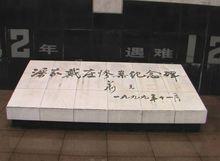 12年 遇难 12
潘家戴庄惨案纪念碑
一九九九年十一月